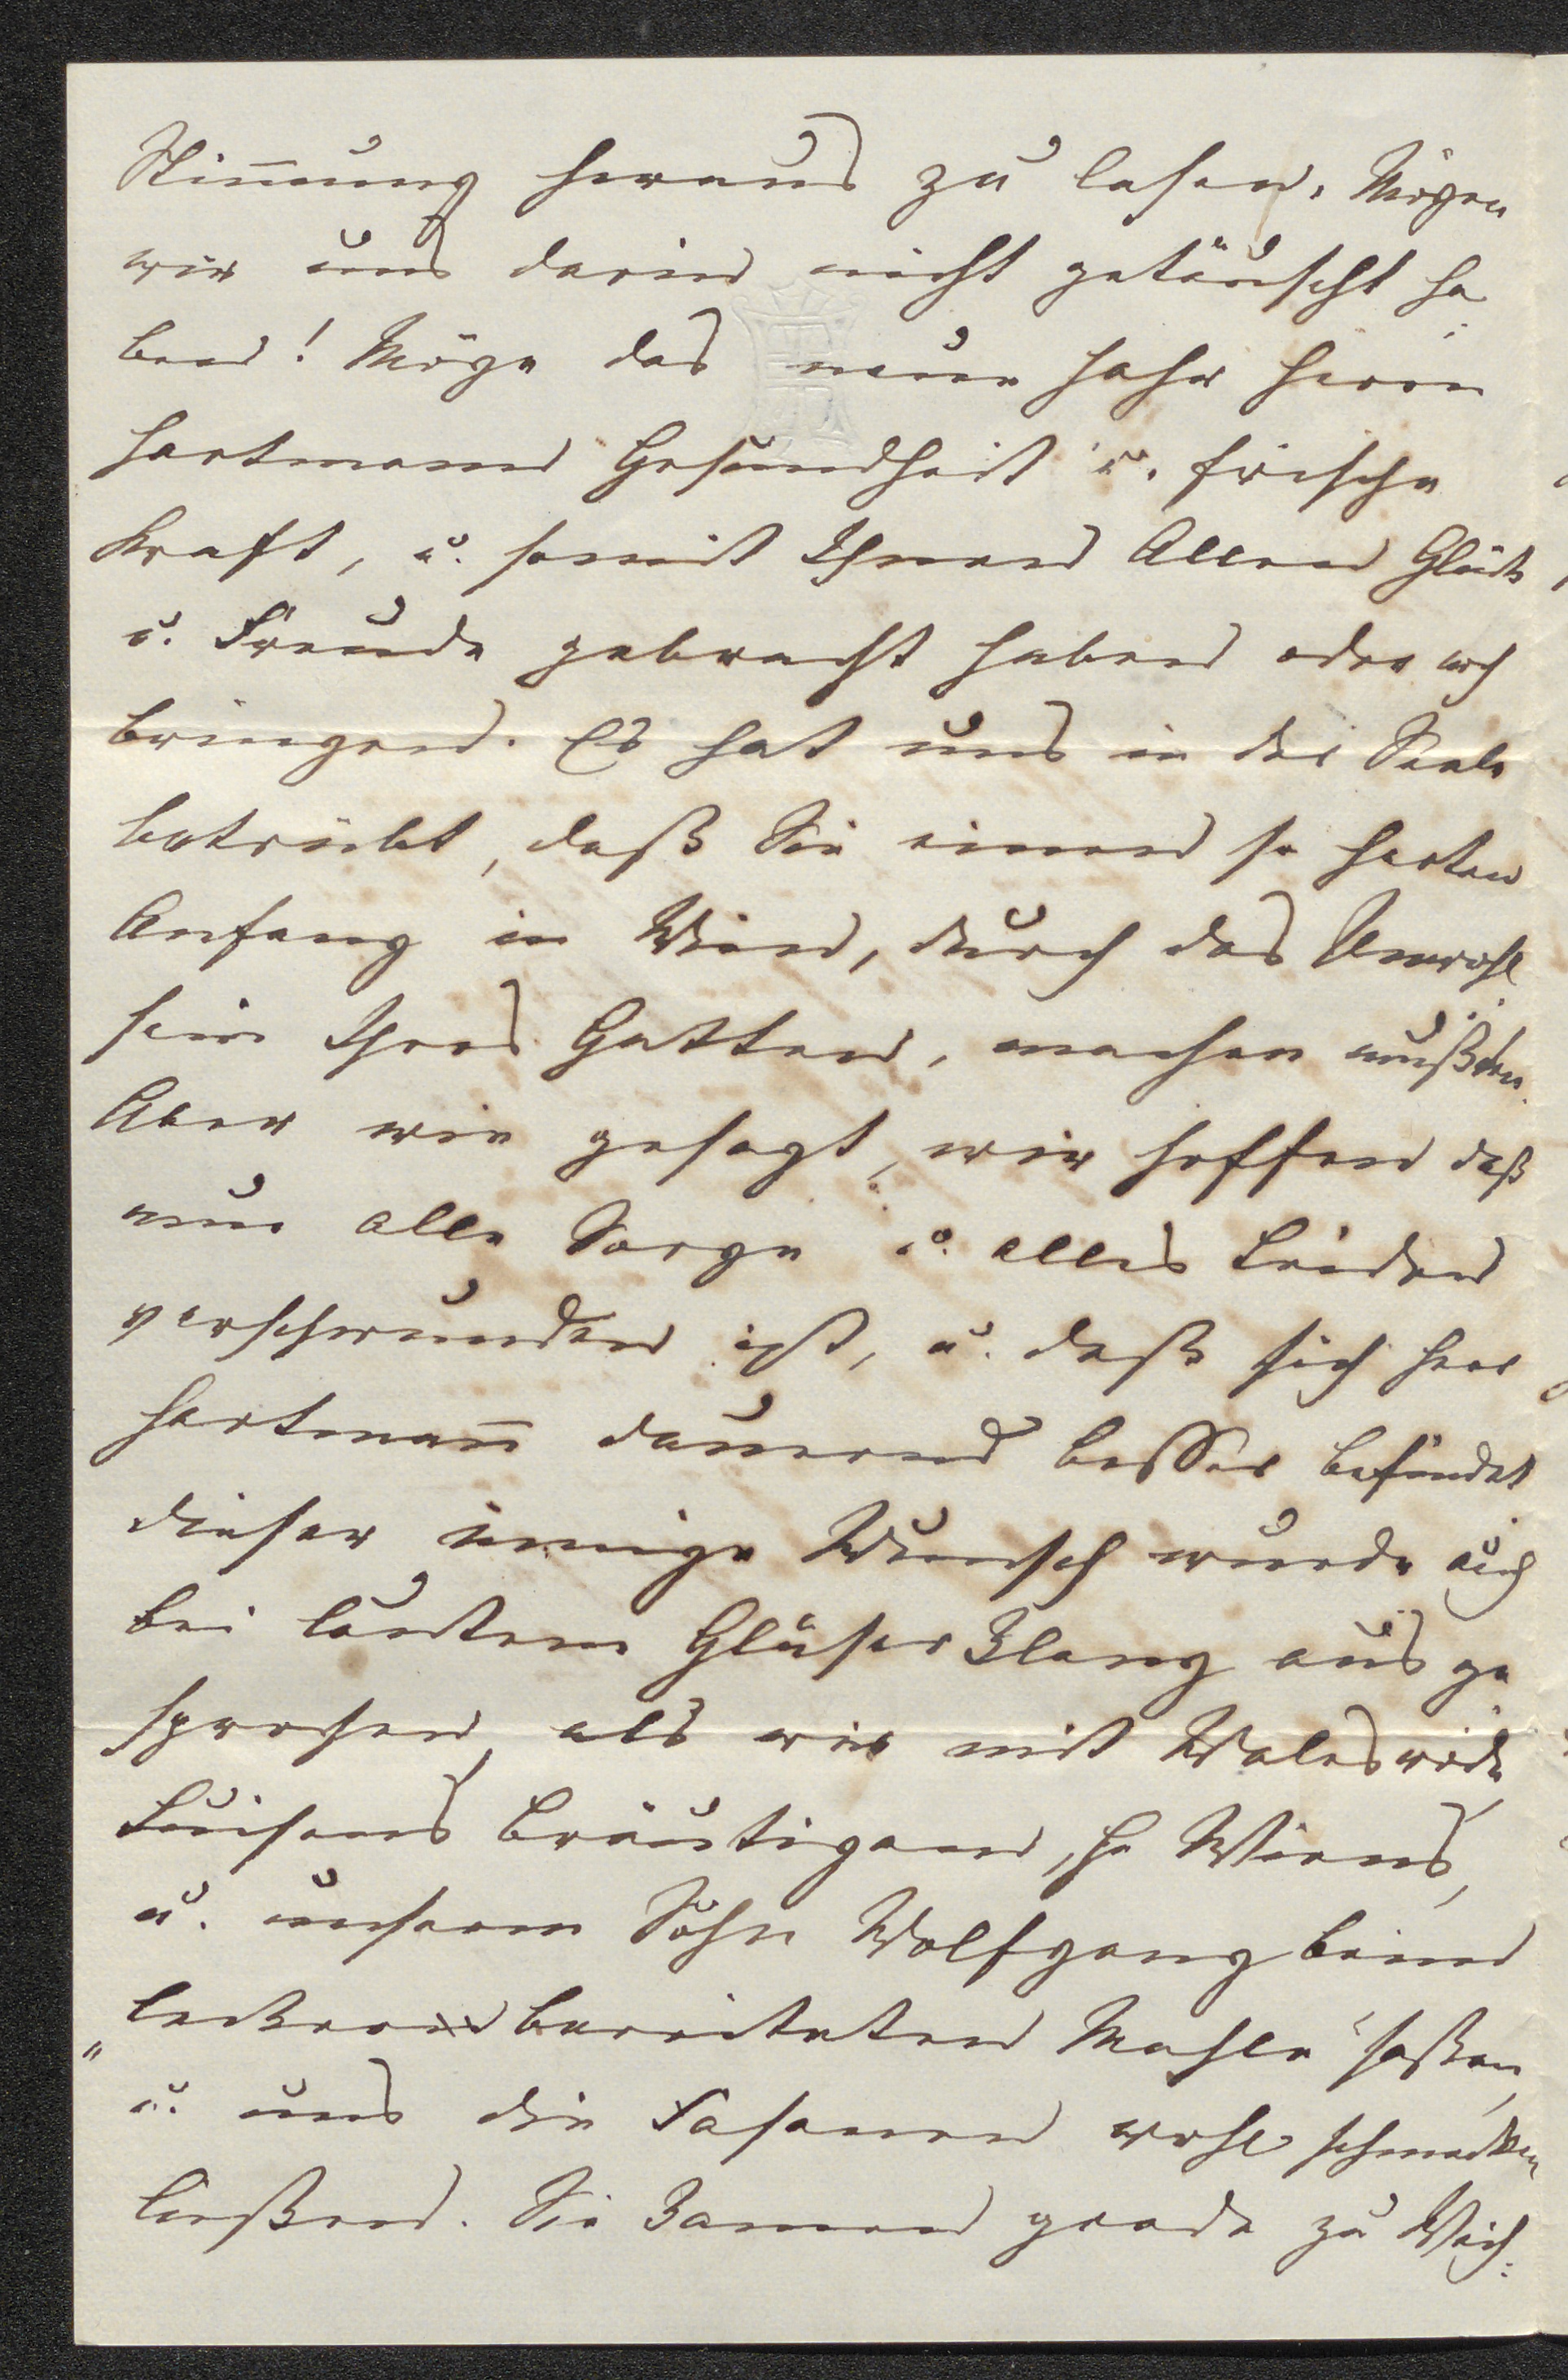 Stim̄ung heraus zu lesen. Mögen
wir uns darin nicht getäuscht ha
ben! Möge das neue Jahr Herrn
Hartmann Gesundheit u. frische
Kraft, u. somit Ihnen Allen Glück
u. Freude gebracht haben oder noch
bringen. Es hat uns in der Seele
betrübt, daß Sie einen so harten
Anfang in Wien, durch das Unwohl
sein Ihres Gatten, machen mußten.
Aber wie gesagt, wir hoffen daß
nun alle Sorge u. alles Leiden
verschwunden ist, u. daß sich Herr
Hartman̄ dauernd besser befindet
dieser innige Wunsch wurde auch
bei lautem Gläser Klang aus ge
sprochen, als wir mit Walesrode,
Luisens Bräutigam, H Wiens,
u. unserem Sohn Wolfgang beim
„leckern bereiteten Mahle“ saßen,
u. uns die Fasanen wohl schmecken
ließen. Sie kamen grade zu Weih: